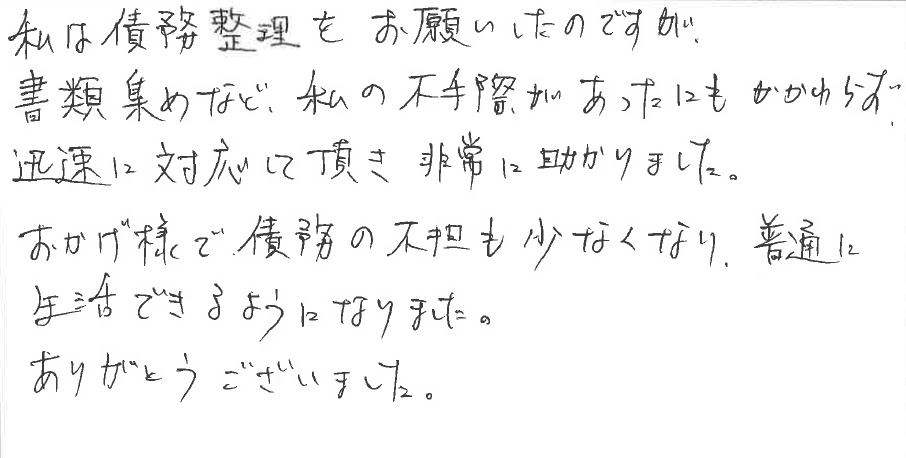 私は債務整理をお願いしたのですが、
書類集めなど、私の不手際があったにもかかわらず、
迅速に対応して頂き非常に助かりました。
おかげ様で債務の不担も少なくなり、普通に
生活できるようになりました。
ありがとうございました。